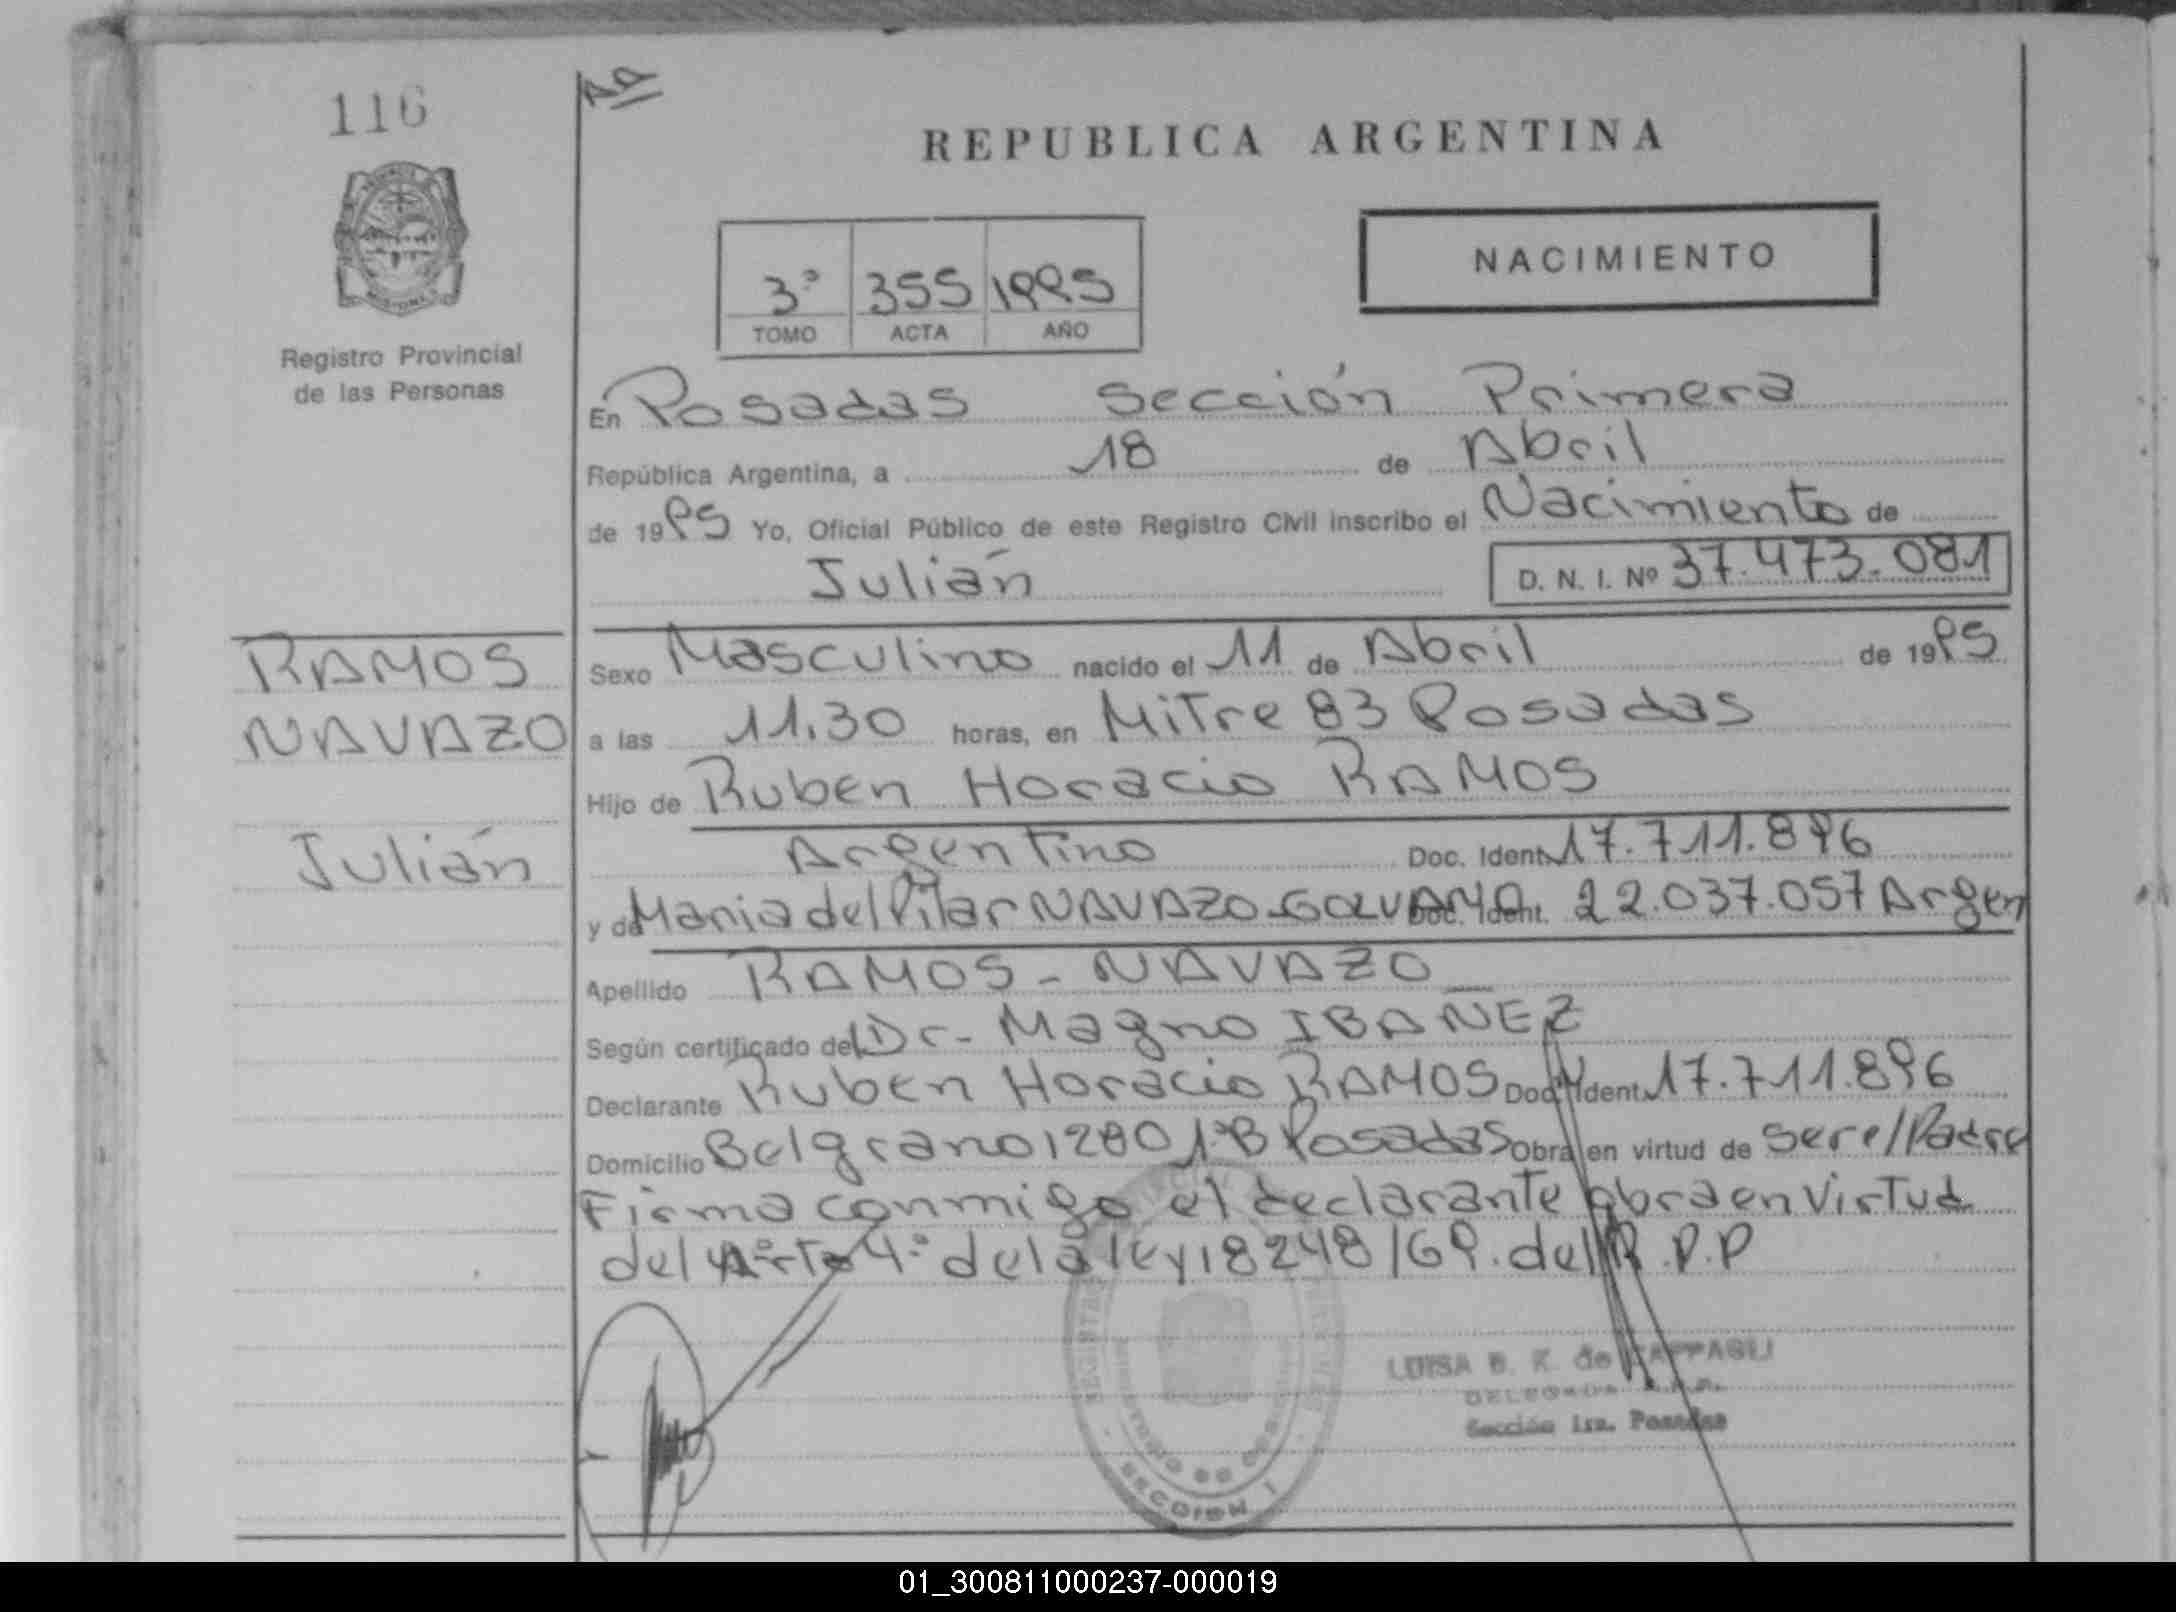 116
REPUBLICA ARGENTINA
NACIMIENTO
3° 355 1995
TOMO ACTA AÑO
Registro Provincial
de las Personas
En Posadas Sección Primera
República Argentina, a 18 de Abril
de 1995 Yo, Oficial Público de este Registro Civil inscribo el Nacimiento de
Julián D. N. I. Nº 37.473.081
RAMOS
NAVAZO
Julián
Sexo Masculino nacido el 11 de Abril de 1995
a las 11.30 horas, en Mitre 83 Posadas
Hijo de Ruben Horacio RAMOS
Argentino Doc. Ident. 17.711.896
y de Maria del Pilar NAVAZO Doc. Ident. 22.037.057 Argen
Apellido RAMOS - NAVAZO
Según certificado del Dr. Magno IBAÑEZ
Declarante Ruben Horacio RAMOS Doc. Ident. 17.711.896
Domicilio Belgrano 1280 1°B Posadas Obra en virtud de ser el Padre
Firma conmigo el declarante obra en Virtud
del Arto 4° de la ley 18248/69. del R.P.P
LUISA B. K. de
DELEGADA
Sección 1ra. Posadas
SECCION I
01_300811000237-000019